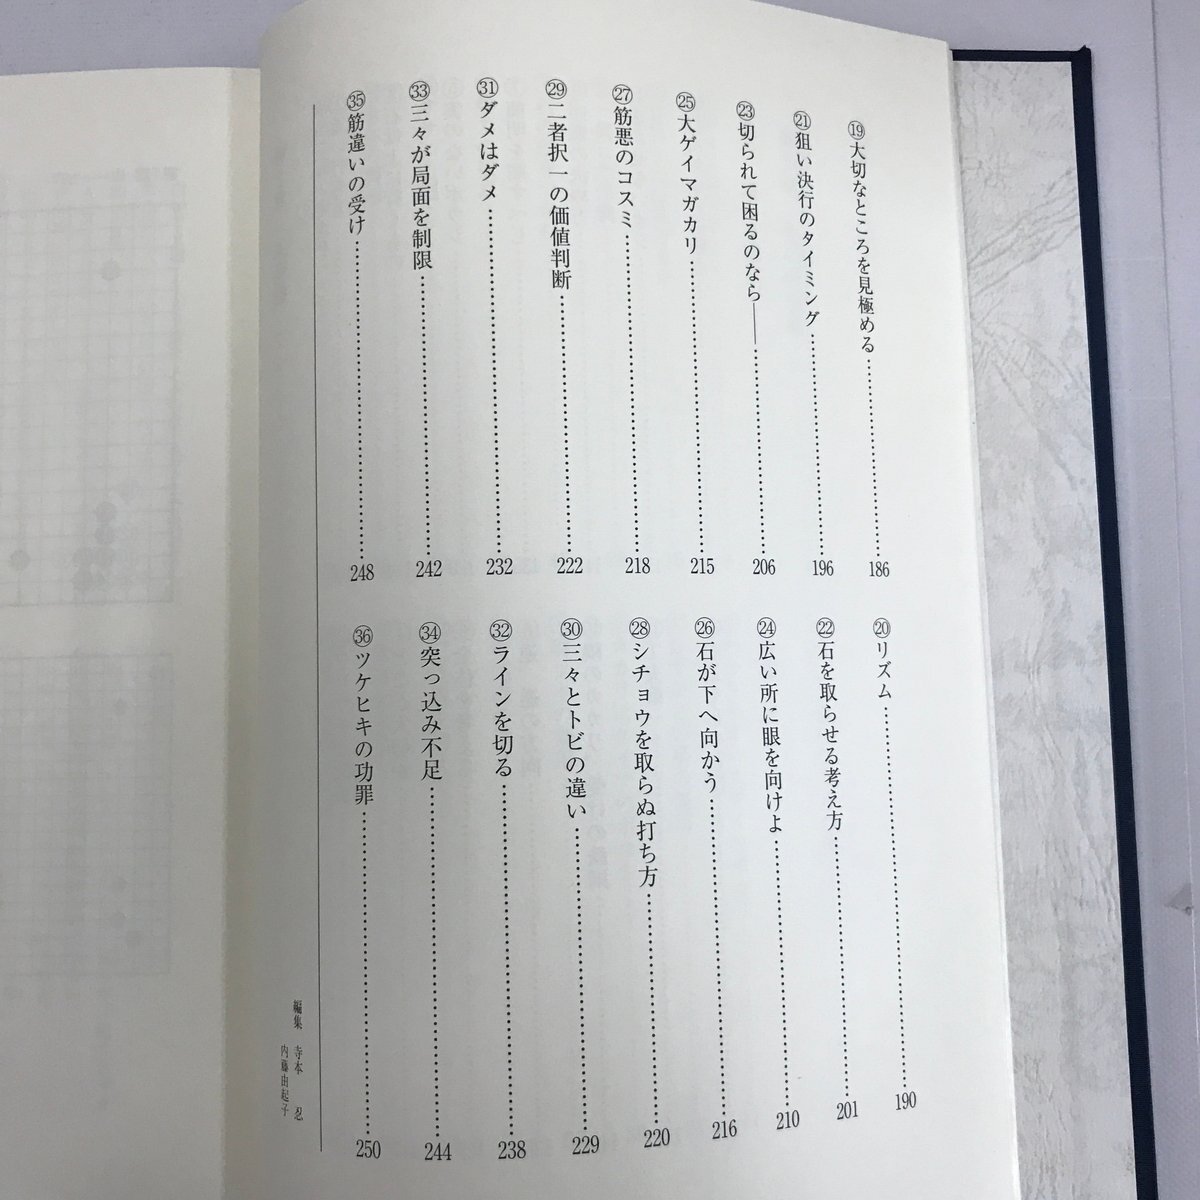 ⑲大切なところを見極める……186
⑳リズム……190
㉑狙い決行のタイミング……196
㉒石を取らせる考え方……201
㉓切られて困るのなら――……206
㉔広い所に眼を向けよ……210
㉕大ゲイマガカリ……215
㉖石が下へ向かう……216
㉗筋悪のコスミ……218
㉘シチョウを取らぬ打ち方……220
㉙二者択一の価値判断……222
㉚三々とトビの違い……229
㉛ダメはダメ……232
㉜ラインを切る……238
㉝三々が局面を制限……242
㉞突っ込み不足……244
㉟筋違いの受け……248
㊱ツケヒキの功罪……250
編集 寺本 忍
内藤由起子